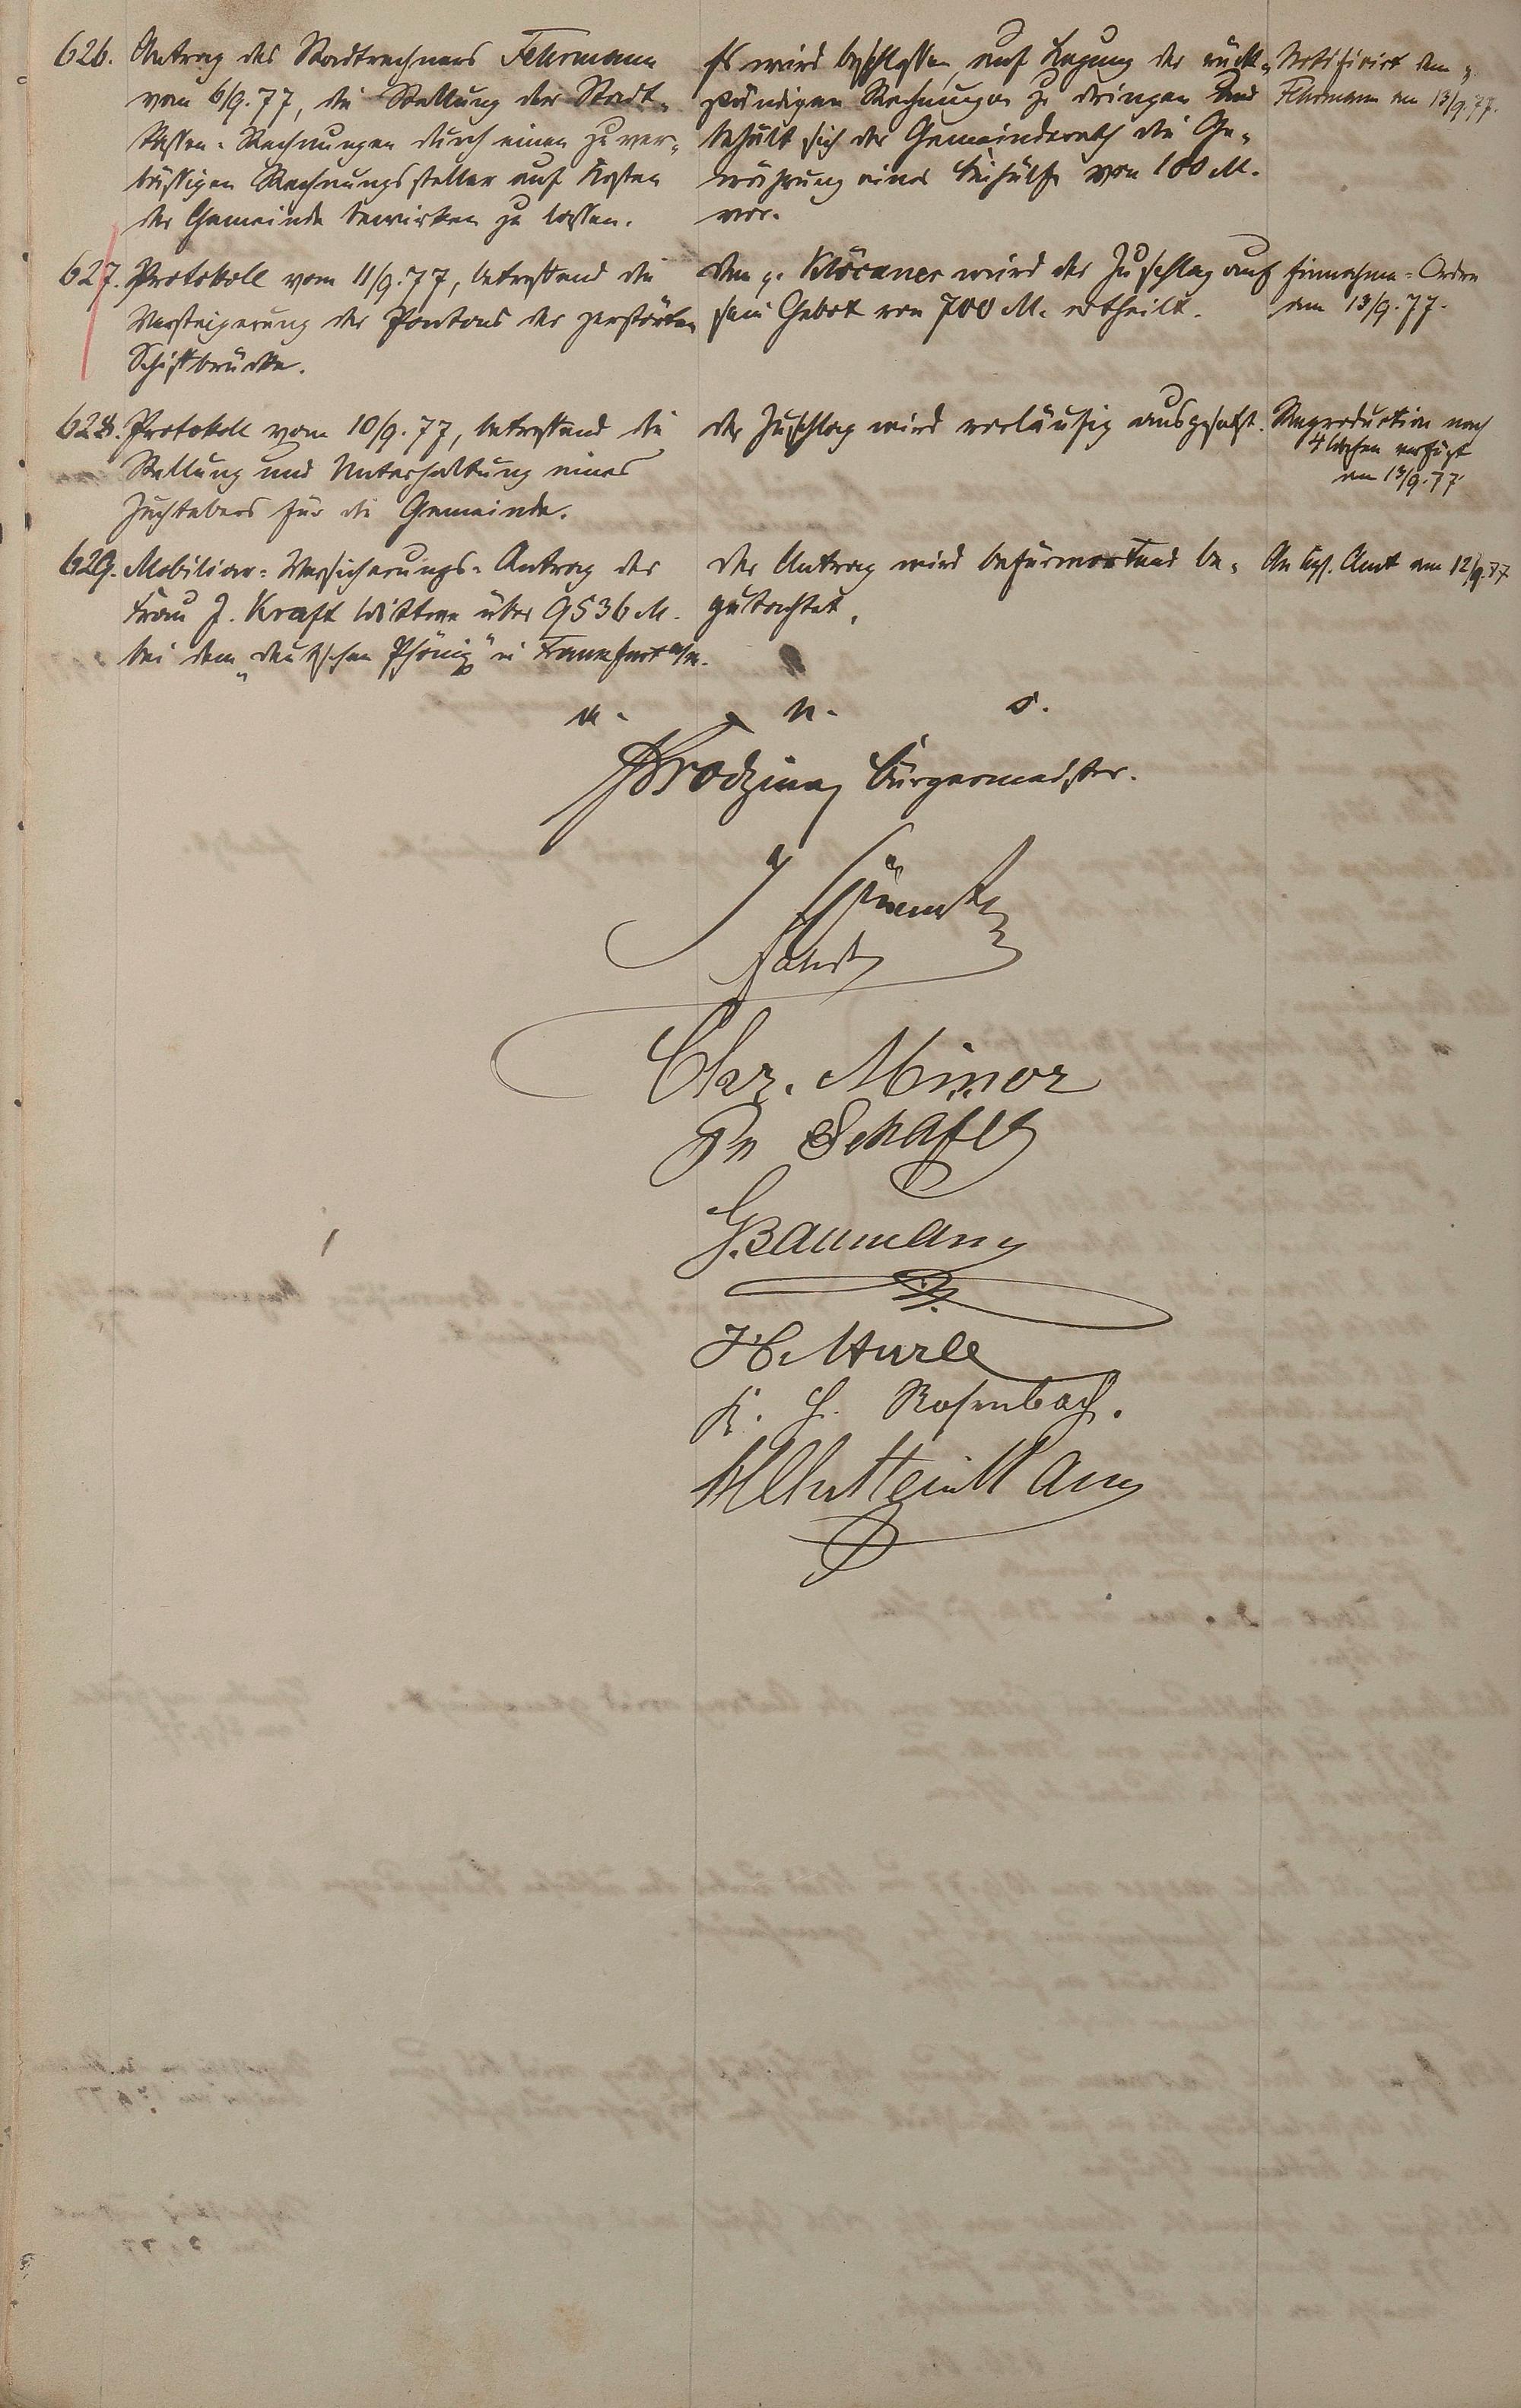 626. Antrag des Stadtrechners Fehrmann
vom 6/9. 77, die Stellung der Stadt-
kassen-Rechnungen durch einen zuver-
lässigen Rechnungssteller auf Kosten
der Gemeinde bewirken zu lassen.
Es wird beschlossen, auf Legung der rück-
ständigen Rechnungen zu dringen und
behält sich der Gemeinderath die Ge-
währung einer Beihülfe von 100 M.
vor.
Notificirt dem p.
Fehrmann am 13/9. 77.
627. Protokoll vom 11/9. 77, betreffend die
Versteigerung der Pontons der zerstörten
Schiffbrücke.
Dem p. Klöckner wird der Zuschlag auf
sein Gebot von 700 M. ertheilt.
Einnahme-Ordre
am 13/9. 77.
628. Protokoll vom 10/9. 77, betreffend die
Stellung und Unterhaltung eines
Zuchtebers für die Gemeinde.
Der Zuschlag wird vorläufig ausgesetzt.
Reproduction nach
4 Wochen verfügt
am 13/9. 77
629. Mobiliar-Versicherungs-Antrag der
Frau J. Kraft Wittwe über 9536 M.
bei dem „deutschen Phönix" in Frankfurt a/M.
Der Antrag wird befürwortend be-
gutachtet.
An Kgl. Amt am 12/9. 77
u. n. s.
Bürgermeister.
Chr. Minor
Schäfer
G. Baumann
H. Murle
K. H. Rosenbach.